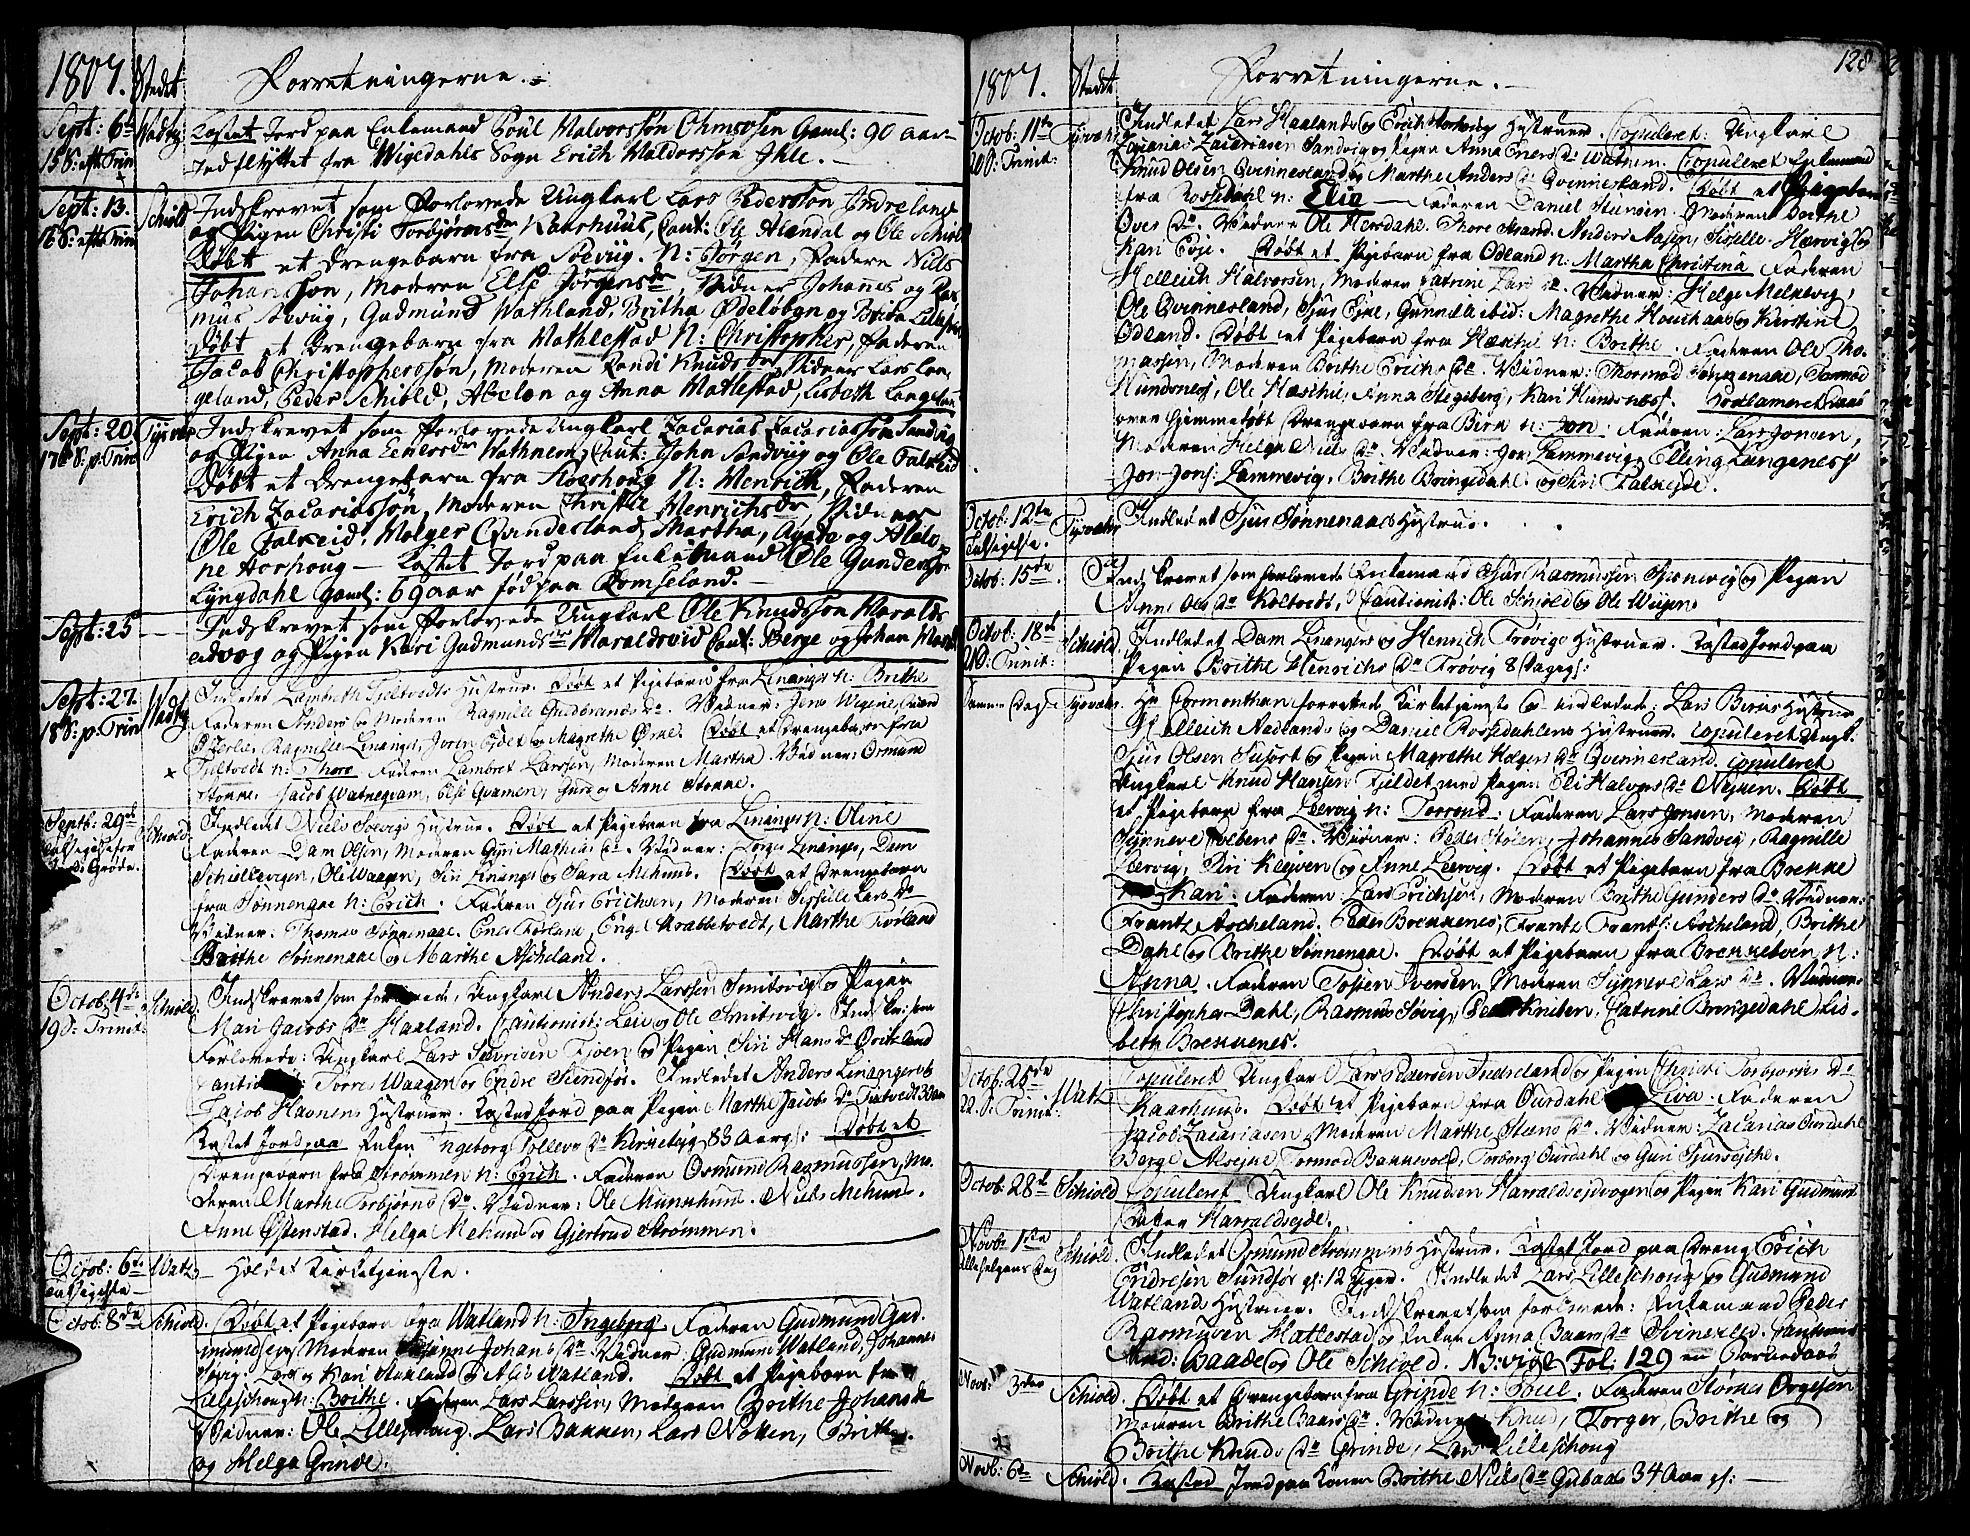 1807. Stedet Forretningerne.
Sept: 6te Wadty Kastet Jord paa Enkemand Poul Halvorssøn Ohmsosen Gaml: 90 aar
15 S: efter Trin Indflyttet fra Wigedahls Sogn Erich Haldorssøn Ihle.
Sept: 13. Schiold Indskrevet som Forlovede Ungkarl Lars Peersøn Indreland
16 S: efter Trin og Pigen Christi Torbjørnsdr Kaarhuus, Caut: Ole Alendal og Ole Schiold
Døbt et Drengebarn fra Soevug. N: Jørgen, Faderen Nills
Johanssøn, Moderen Else Jørgensdr, Vidner Johanes og Ras-
mus Soevug, Gudmund Wathland, Britha Ødeløbyn og
Døbt et Drengebarn fra Hatlestad N: Christopher, Faderen
Jacob Christophersøn, Moderen Randi Knudsdr Vidner Lars Lan-
geland, Peder Schiold, Abelon og Anna Hatlestad, Lisbeth Langeland
Sept: 20 Tysvær Indskrevet som forlovede Ungkarl Zacarias Zacariassøn Sandvig
17de S: p: Trin og Pigen Anna Enersdr Wathnem, Caut: John Sandvug og Ole Falkeid
Døbt et Drengebarn fra Aarshoug N: Henrich, Faderen
Erich Zacariassøn, Moderen Christie Henrichsdr, Vidner
Ole Falkeid, Holger Qvinderland, Martha, Agate og Abelo-
ne Aorshoug — Kastet Jord paa Enkemand Ole Gunderssøn
Lyngdahl Gaml: 69 aar fød paa Romseland.
Sept: 25 Indskrevet som Forlovede Ungkarl Ole Knudssøn Haralds
eidvog og Pigen Kari Gudmundsdr Haraldseid Caut: Berge og Johan
Sept: 27. Wadty Indledet Lambreth Tieltvedts Hustrue. Døbt et Pigebarn fra Linanger n: Brithe
18 S: p: Trin Faderen Anders Moderen Ragnille Gudbrandsdr. Vadner: Jens
Ragnille Linanger, Joren Eyde og Magrethe Øvne. Døbt et Drengebarn fra
Tieltvedt n: Thore Faderen Lambret Larssen, Moderen Martha. Vadner: Osmund
Stonne. Jacob Watnegvam, Else Qvamen, Guro og Anne Stonne.
Septb: 29de Schiold Indledet Niels Soevigs Hustrue. Døbt et Pigebarn fra Linanger n: Oline
Faderen Dam Olsen, Moderen Gyri Mathiasdr. Vadner: Torger Linanger, Dam
Schiellevigen, Ole Waagen, Siri Linanger og Sara Mehuus. Døbt et Drengebarn
fra Sønnenaae n: Erich. Faderen Sjur Erichsen, Moderen Sissille Larsdr
Vadner: Thomas Sønnenaae. Ener Førland, Eng: Krabbetvedt, Marthe Førland
Brithe Sønnenaae og Marthe Ascheland.
Octob: 4de Schiold Indskrevet som forlovede, Ungkarl Anders Larssen Smitsvig og Pigen
19 S: Trinit: Mari Jacobsdr Haaland. Cautionist: Leiv og Ole Smitsvig. Indskr: som
Forlovede: Ungkarl Lars Siversen Tioen og Pigen Siri Hansdr Østland
Torris Waagen og Endre Sundfør. Indledet Anders Linangers og
Jacob Havnens Hustruer. Kasted Jord paa Pigen Marthe Jacobsdr
Kastet Jord paa Enken Ingeborg Tollevsdr Kirkelejg 83 Aar gl: Døbt et
Drengebarn fra Strømmen n: Erich. Faderen Osmund Rasmussen, Mo-
deren Marthe Torbjørnsdr. Vadner: Ole Munkhuus. Niels Mehuus.
Anne Østenstad. Helga Mehuus og Giertrud Strømmen.
Octob: 6te Watz Holdet Kirketjeneste.
Octob: 8de Schiold. Døbt et Pigebarn fra Watland n: Ingeborg Faderen Gudmund Gud-
mundsen, Moderen Johansdr. Vadner: Gudmund Watland, Johannes
Søvig, Lars og Kari og Alis Watland. Døbt et Pigebarn fra
Lilleschoug n: Brithe. Faderen Lars Larssen, Moderen Brithe Johansdr
Vadner: Ole Lilleschoug. Lars Bakken, Lars Nokken, Brithe
og Helga Grinde.
128
1807. Stedet Forretningerne.
Octob: 11te Tysvær Indledet Lars Haalands og Erich Horhougs Hustruer. Copuleret: Ungkarl
20 S: Trinit: Zacarias Zacariasen Sandvig og Pigen Anna Enersdr Watnem. Copuleret Enkemand
Knud Olsen Qvinnesland og Marthe Andersdr Qvinnesland. Døbt et Pigebarn
fra Rossedahl n: Elia — Faderen Daniel Moderen Brithe
Oversdr. Vadner Ole Hersdahl. Thore Strand. Anders Aasen, Sisselle Hærvig og
Kari Eoje. Døbt et Pigebarn fra Odland n: Martha Christina Faderen
Hellich Halvorsen, Moderen Catrine Larsdr. Vadner: Helge Melkevig,
Ole Qvinnesland, Sjur Ejne, Gunnela ibid: Magrethe Houchaas og Kerstine
Odland. Døbt et Pigebarn fra Hæsthe n: Brithe. Faderen Ole Tho-
massen, Moderen Brithe Erichsdr. Vadner: Thormod Sønnenaae, Tormod
Hundsnes, Ole Hæsthe, Anna Stegeberg, Kari Hundsnes. Proclameret
over hjemmedøbt Drengebarn fra Birk n: Jon. Faderen: Lars Jonsen,
Moderen Helga Nielsdr. Vadner: Jon Lammevig, Elling Langenes
Jon Jons: Lammevig, Brithe Bringedahl og Siri Falkejde.
Octob: 12te Tysvær Indledet Sjur Sønnenaaes Hustrue.
Octob: 15de Indskrevet som forlovede Enkemand Sjur Rasmussen og Pigen
Anne Olsdr Koltvedt, Cautionist: Ole Schiold og Ole
Octob: 18de Schiold. Indledet Dam Linangers og Henrich Trøvigs Hustruer. Kasted Jord paa
21 S: Trinit: Pigen Brithe Henrichsdr Trøvig 8 Dage gl:
Samme Dag Tysvær. Hr Formonthan forrettede Kirketjeneste og indledede: Lars Birks Hustrue
Hellich Aadlands og Daniel Rossedahlens Hustruer. Copuleret Ungk:
Sjur Olsen og Pigen Magrethe Holgersdr Qvinnesland. Copuleret
Ungkarl Knud Hansen Fieldet med Pigen Eli Halvorsdr. Døbt
et Pigebarn fra Leervig n: Torrend. Faderen Lars Jonsen, Moderen
Synneve Tolbensdr. Vadner: Peder Johannes Sandvig, Ragnille
Leervig, Siri Kleven og Anne Leervig. Døbt et Pigebarn fra Brekke
Kari. Faderen Lars Erichsen, Moderen Brithe Gundersdr. Vadner:
Frantz Ascheland. Peder Brekkenes, Frantz Frants: Ascheland, Brithe
Dahl og Brithe Sønnenaae. Døbt et Pigebarn fra Brekketoen n:
Anna. Faderen Tosten Iversen, Moderen Synneve Larsdr. Vadner:
Christopher Dahl, Rasmus Søvig, Peder Knutsen, Catrine Bringedahl, Lis-
beth Brekkenes.
Octob: 25de Watz Copuleret Ungkarl Lars Pedersen Indreland og Pigen Christi Torbjørnsdr
22 S: Trinit: Kaarhuus. Døbt et Pigebarn fra Ourdahl Liva. Faderen
Jacob Zacariasen, Moderen Marthe Steensdr. Vadner: Zacarias Ourdahl
Berge Alvejne, Tormod Bakkevold, Torborg Ourdahl og Guri
Octob: 28de Schiold Copuleret Ungkarl Ole Knudsen Harraldsejdvogen og Pigen Kari Gudmunds
Datter Harraldsejde.
Novb: 1ste Schiold. Indledet Osmund Strømmens Hustrue. Kastet Jord paa Dreng Erich
Allehelgens Dag Endresen Sundfør gl: 12 Uger. Indledet Lars Lilleschougs og Gudmund
Watlands Hustruer. Indskrevet som forlovede: Enkemand Peder
Rasmusen Hattestad og Enken Anna Baarsdr Svinerlie. Cautionist
Anid: Baade og Ole Schiold. NB: vide Fol: 129
Nov: 3die Schiold. Døbt et Drengebarn fra Grinde n: Poul. Faderen Størker Ørgesen
Moderen Brithe Baarsdr. Vadner: Knud, Torger, Brithe og
Brithe Knudsdr Grinde, Lars Lilleschoug
Novb: 6te Schiold. Kasted Jord paa Konen Brithe Nielsdr 34 Aar gl: